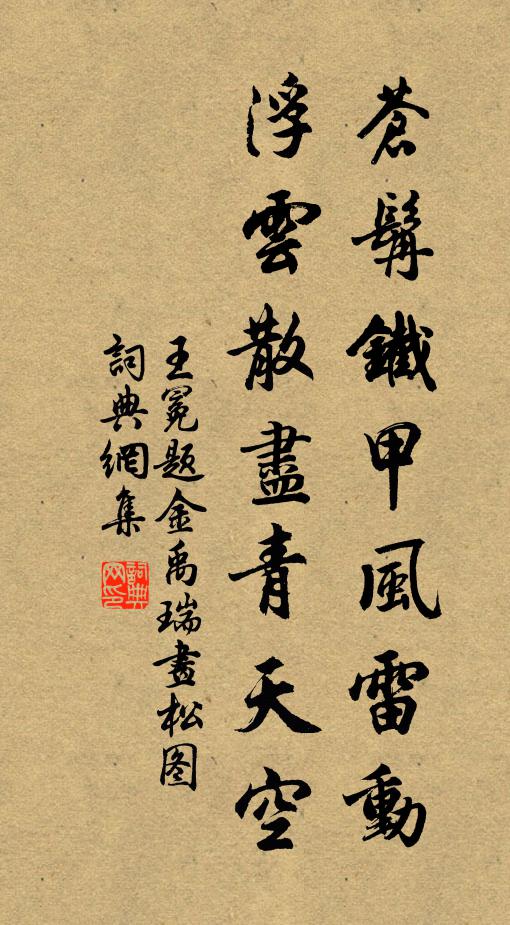 蒼髯鐵甲風雷動
浮雲散盡青天空
王冕題金禹瑞畫松图
詞典網集
詞典网印